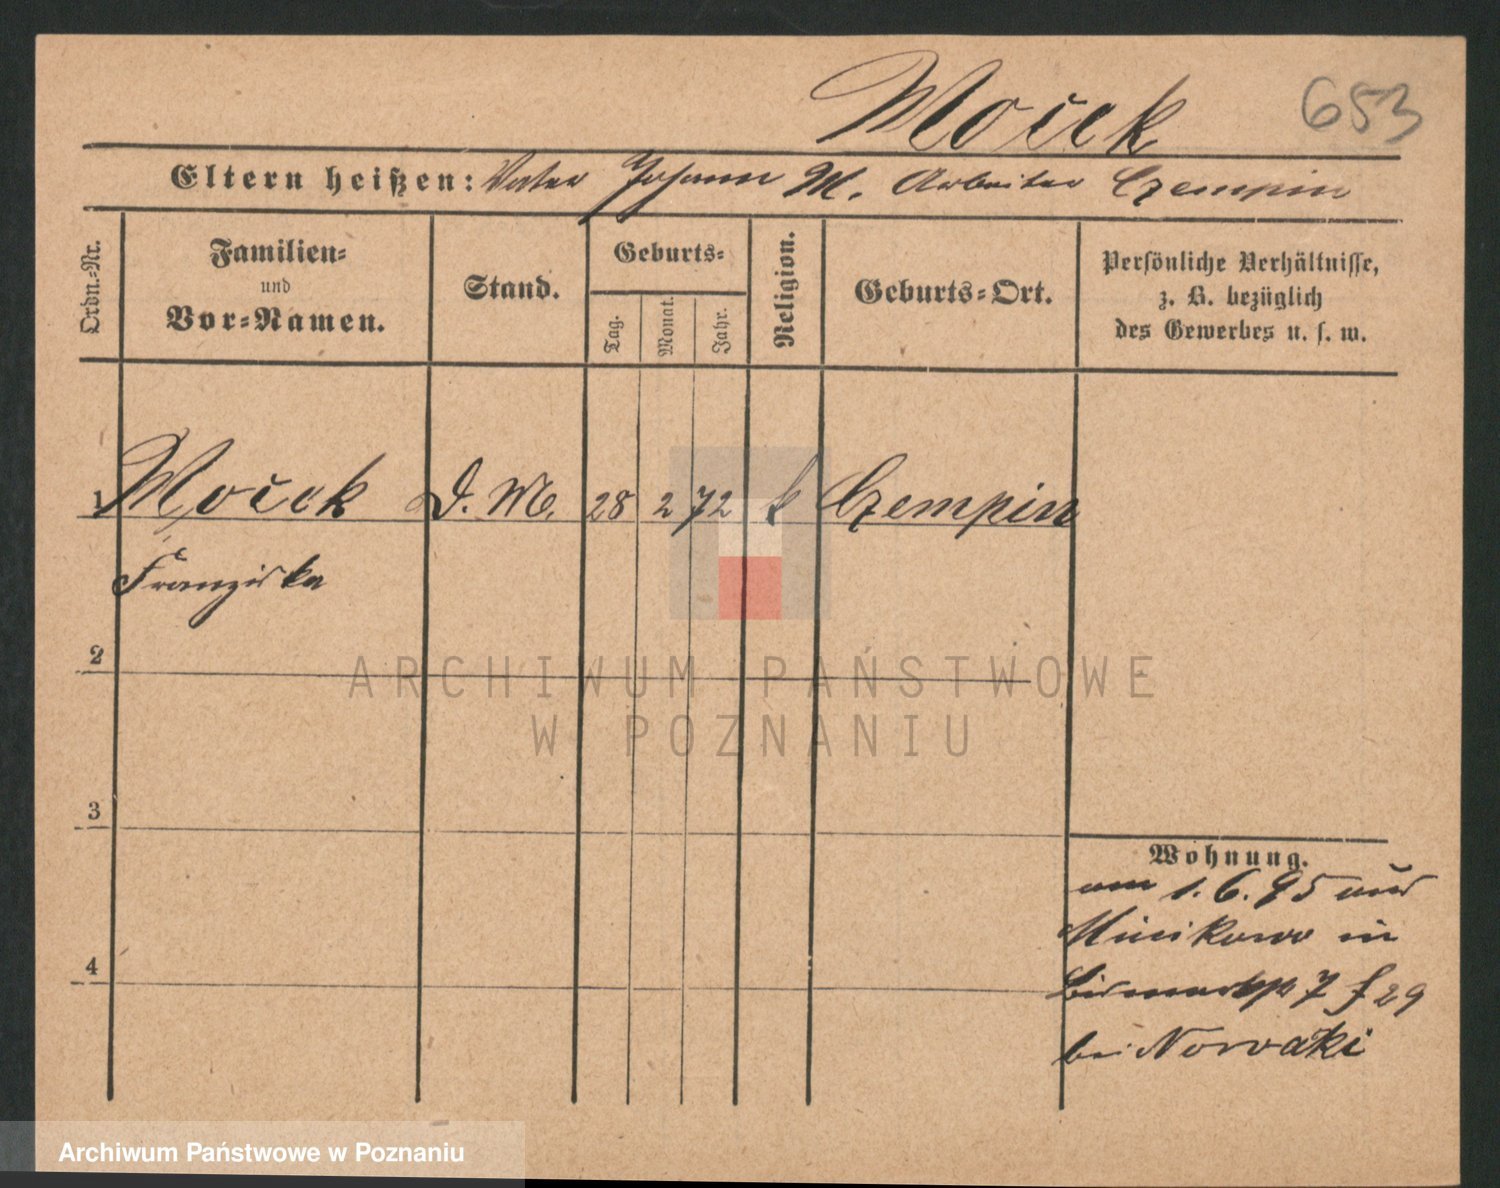 Mocek
653
Eltern heißen: Vater Johann M. Arbeiter Czempin
Ordn.-Nr.
Familien-
und
Vor-Namen.
Stand.
Geburts-
Tag.
Monat.
Jahr.
Religion.
Geburts-Ort.
Persönliche Verhältnisse,
z. B. bezüglich
des Gewerbes u. s. w.
1 Mocek D. M. 28 2 72 k Czempin
Franziska
2
ARCHIWUM PAŃSTWOWE
W POZNANIU
3
4
Wohnung.
am 1.6.95 aus
Minikowo in
7 29
bei Nowacki
Archiwum Państwowe w Poznaniu